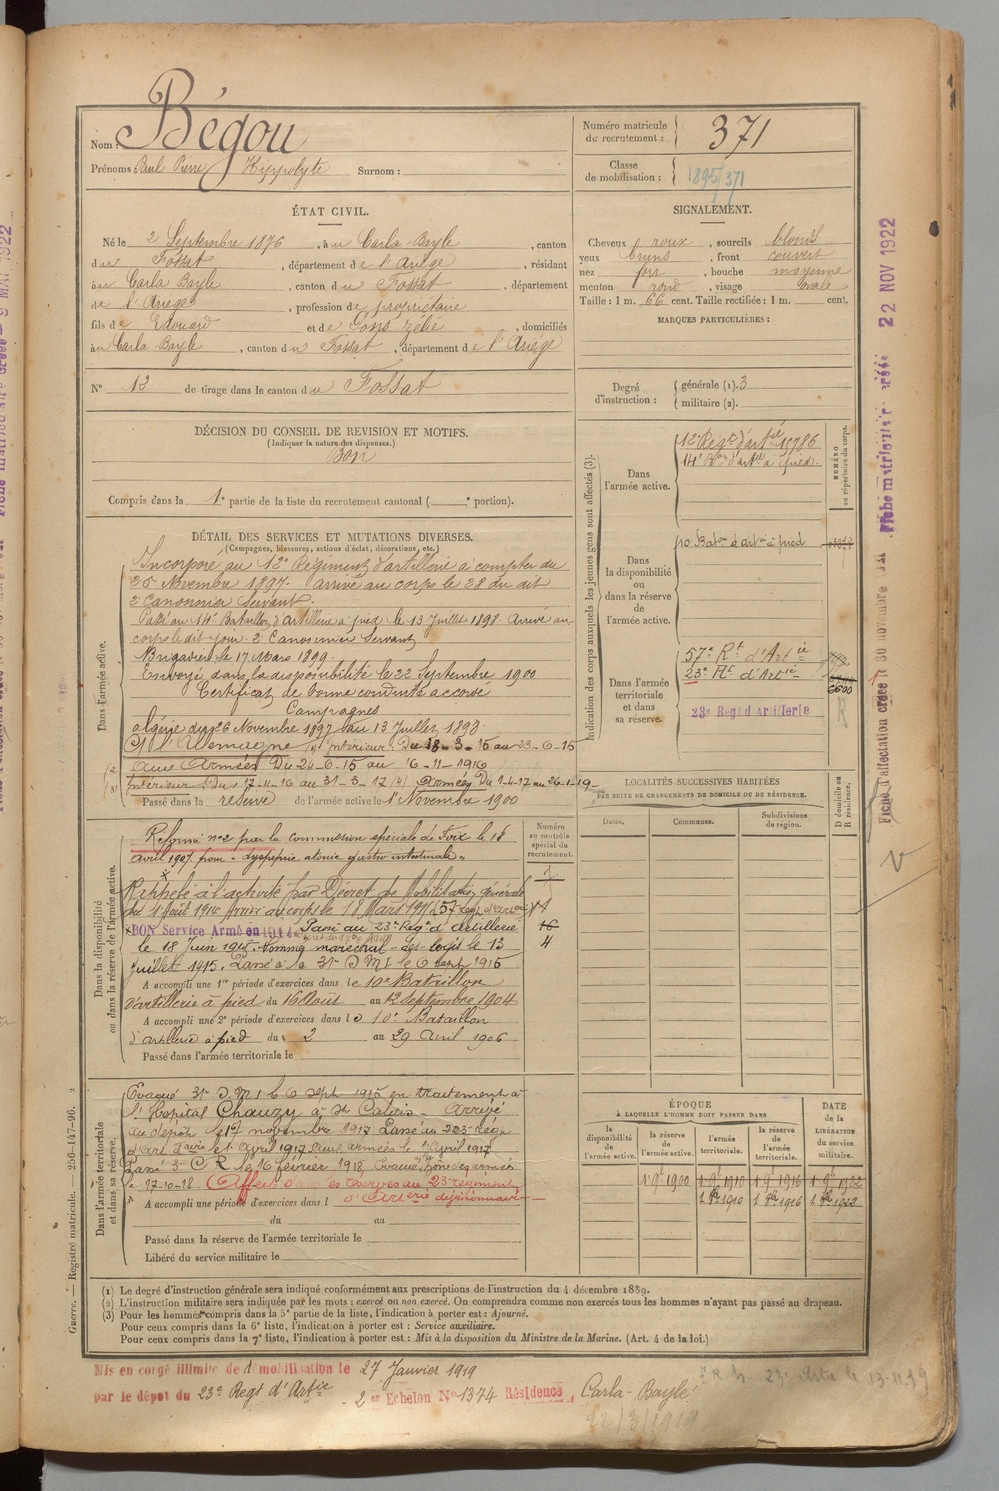 Nom : Bégou
Prénoms : Paul Pierre Hippolyte Surnom :
Numéro matricule du recrutement : 371
Classe de mobilisation : 1895/371
ÉTAT CIVIL.
Né le 2 Septembre 1876, à u Carla-Bayle, canton
d u Fossat, département d e l'Ariège, résidant
à u Carla Bayle, canton d u Fossat, département
de l'Ariège, profession de propriétaire
fils de Edouard et de Pons Zélie, domiciliés
à u Carla-Bayle, canton d u Fossat, département d e l'Ariège
N° 13 de tirage dans le canton d u Fossat
SIGNALEMENT.
Cheveux roux, sourcils blonds
yeux bruns, front couvert
nez fort, bouche moyenne
menton rond, visage ovale
Taille : 1 m. 66 cent. Taille rectifiée : 1 m. cent.
MARQUES PARTICULIÈRES :
Degré d'instruction : générale (1). 3
militaire (2).
DÉCISION DU CONSEIL DE REVISION ET MOTIFS.
(Indiquer la nature des dispenses.)
Bon
Compris dans la 1e partie de la liste du recrutement cantonal ( e portion).
DÉTAIL DES SERVICES ET MUTATIONS DIVERSES.
(Campagnes, blessures, actions d'éclat, décorations, etc.)
Dans l'armée active.
Incorporé au 12e Régiment d'artillerie à compter du
25 Novembre 1897. arrivé au corps le 28 du dit
2e Canonnier Servant.
Passé au 14e Bataillon d'artillerie à pied le 13 Juillet 1898 Arrivé au
corps le dit jour. 2e Canonnier Servant
Brigadier le 17 Mars 1899.
Envoyé dans la disponibilité le 22 Septembre 1900
Certificat de bonne conduite accordé
Campagnes
Algérie du 26 Novembre 1897 au 13 Juillet 1898.
l'Allemagne (1) Intérieur : Du 18-3-15 au 23-6-15
(2 Aux Armées Du 24-6-15 au 16-11-1916
(3) Intérieur : Du 17-11-16 au 31-3-17 (4) Armées Du 1-4-17 au 26-1-19
Passé dans la réserve de l'armée active le 1er Novembre 1900
Dans la disponibilité ou dans la réserve de l'armée active.
Réformé n°2 par la commission spéciale de Foix le 18
avril 1907 pour « dyspepsie atonie gastro intestinale »
Rappelé à l'activité par Décret de Mobilisation générale
du 1 Août 1914 Arrivé au corps le 18 Mars 1915 (57 Reg. d'Artie)
BON Service Armé en 1914 Passé au 23e Rég. d'Artillerie
le 18 Juin 1915. Nommé maréchal-des-logis le 13
Juillet 1915. Passé à la 31e S M I le 6 sept 1915
A accompli une 1re période d'exercices dans le 10e Bataillon
d'artillerie à pied du 16 Août au 12 Septembre 1904
A accompli une 2e période d'exercices dans l e 10e Bataillon
d'artillerie à pied du 2 au 29 Avril 1906
Passé dans l'armée territoriale le
Numéro au contrôle spécial du recrutement.
Dans l'armée territoriale et dans sa réserve.
Evacué 31e S M I le 6 sept 1915 en traitement à
l'Hôpital Chauzy à St
au dépôt le 17 novembre 1917 Passé au 23e Rég.
d'Art le 1 Avril 1917 aux armées le 1er Avril 1917
Passé 3e C R le 16 février 1918,
le 17-10-18 Affecté dans les réserves au 23e régiment
A accompli une période d'exercices dans l d'Artillerie divisionnaire
du au
Passé dans la réserve de l'armée territoriale le
Libéré du service militaire le
Indication des corps auxquels les jeunes gens sont affectés (3).
NUMÉRO au répertoire du corps.
Dans l'armée active.
12e Régt d'artie 15786
14e Bon d'artie à pied.
Dans la disponibilité ou dans la réserve de l'armée active.
10 Baton d'artie à pied
Dans l'armée territoriale et dans sa réserve.
57e Rt d'Artie
23e Rt d'Artie 6600
23e Regt d'Artillerie
LOCALITÉS SUCCESSIVES HABITÉES
PAR SUITE DE CHANGEMENTS DE DOMICILE OU DE RÉSIDENCE.
Dates. Communes. Subdivisions de région. D domicile ou R résidence.
ÉPOQUE
À LAQUELLE L'HOMME DOIT PASSER DANS
DATE de la LIBÉRATION du service militaire.
la disponibilité de l'armée active. la réserve de l'armée active. l'armée territoriale. la réserve de l'armée territoriale.
1 9e 1900 1 9e 1910 1 9e 1916 1 9e 1922
1 8bre 1910 1 8bre 1916 1 8bre 1922
(1) Le degré d'instruction générale sera indiqué conformément aux prescriptions de l'instruction du 4 décembre 1889.
(2) L'instruction militaire sera indiquée par les mots : exercé ou non exercé. On comprendra comme non exercés tous les hommes n'ayant pas passé au drapeau.
(3) Pour les hommes compris dans la 5e partie de la liste, l'indication à porter est : Ajourné.
Pour ceux compris dans la 6e liste, l'indication à porter est : Service auxiliaire.
Pour ceux compris dans la 7e liste, l'indication à porter est : Mis à la disposition du Ministre de la Marine. (Art. 4 de la loi.)
Guerre. — Registre matricule. — 256-147-96.
Mis en congé illimité de démobilisation le 27 Janvier 1919
par le dépôt du 23e Regt d'Artie 2e Echelon N° 1374 Résidence Carla-Bayle
22/3/1919
23e Artie le 13-11-19
Fiche matricule créée 22 NOV 1922